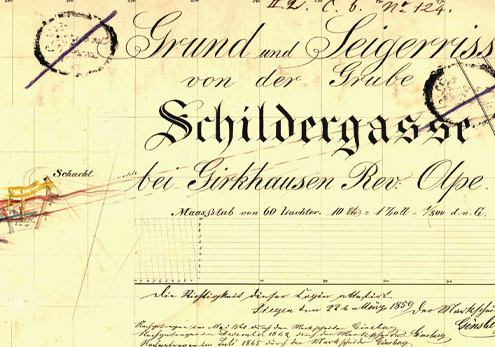 II. L. C. b. No 124.
Grund und Seigerriss
von der Grube
Schildergasse
Schacht
bei Girkhausen Rev: Olpe.
Maasstab von 60 Lachter. 10 = 1 Zoll = 1/800 d. n. G.
Die Richtigkeit dieser Copien attestirt
Siegen den 22 1859 Der Marksch
Nachgetragen im Mai 1860 durch den Markscheider Ginsberg
Nachgetragen im December 1862 durch den Markscheider Ginsberg
Nachgetragen im Juli 1865 durch den Markscheider Ginsberg